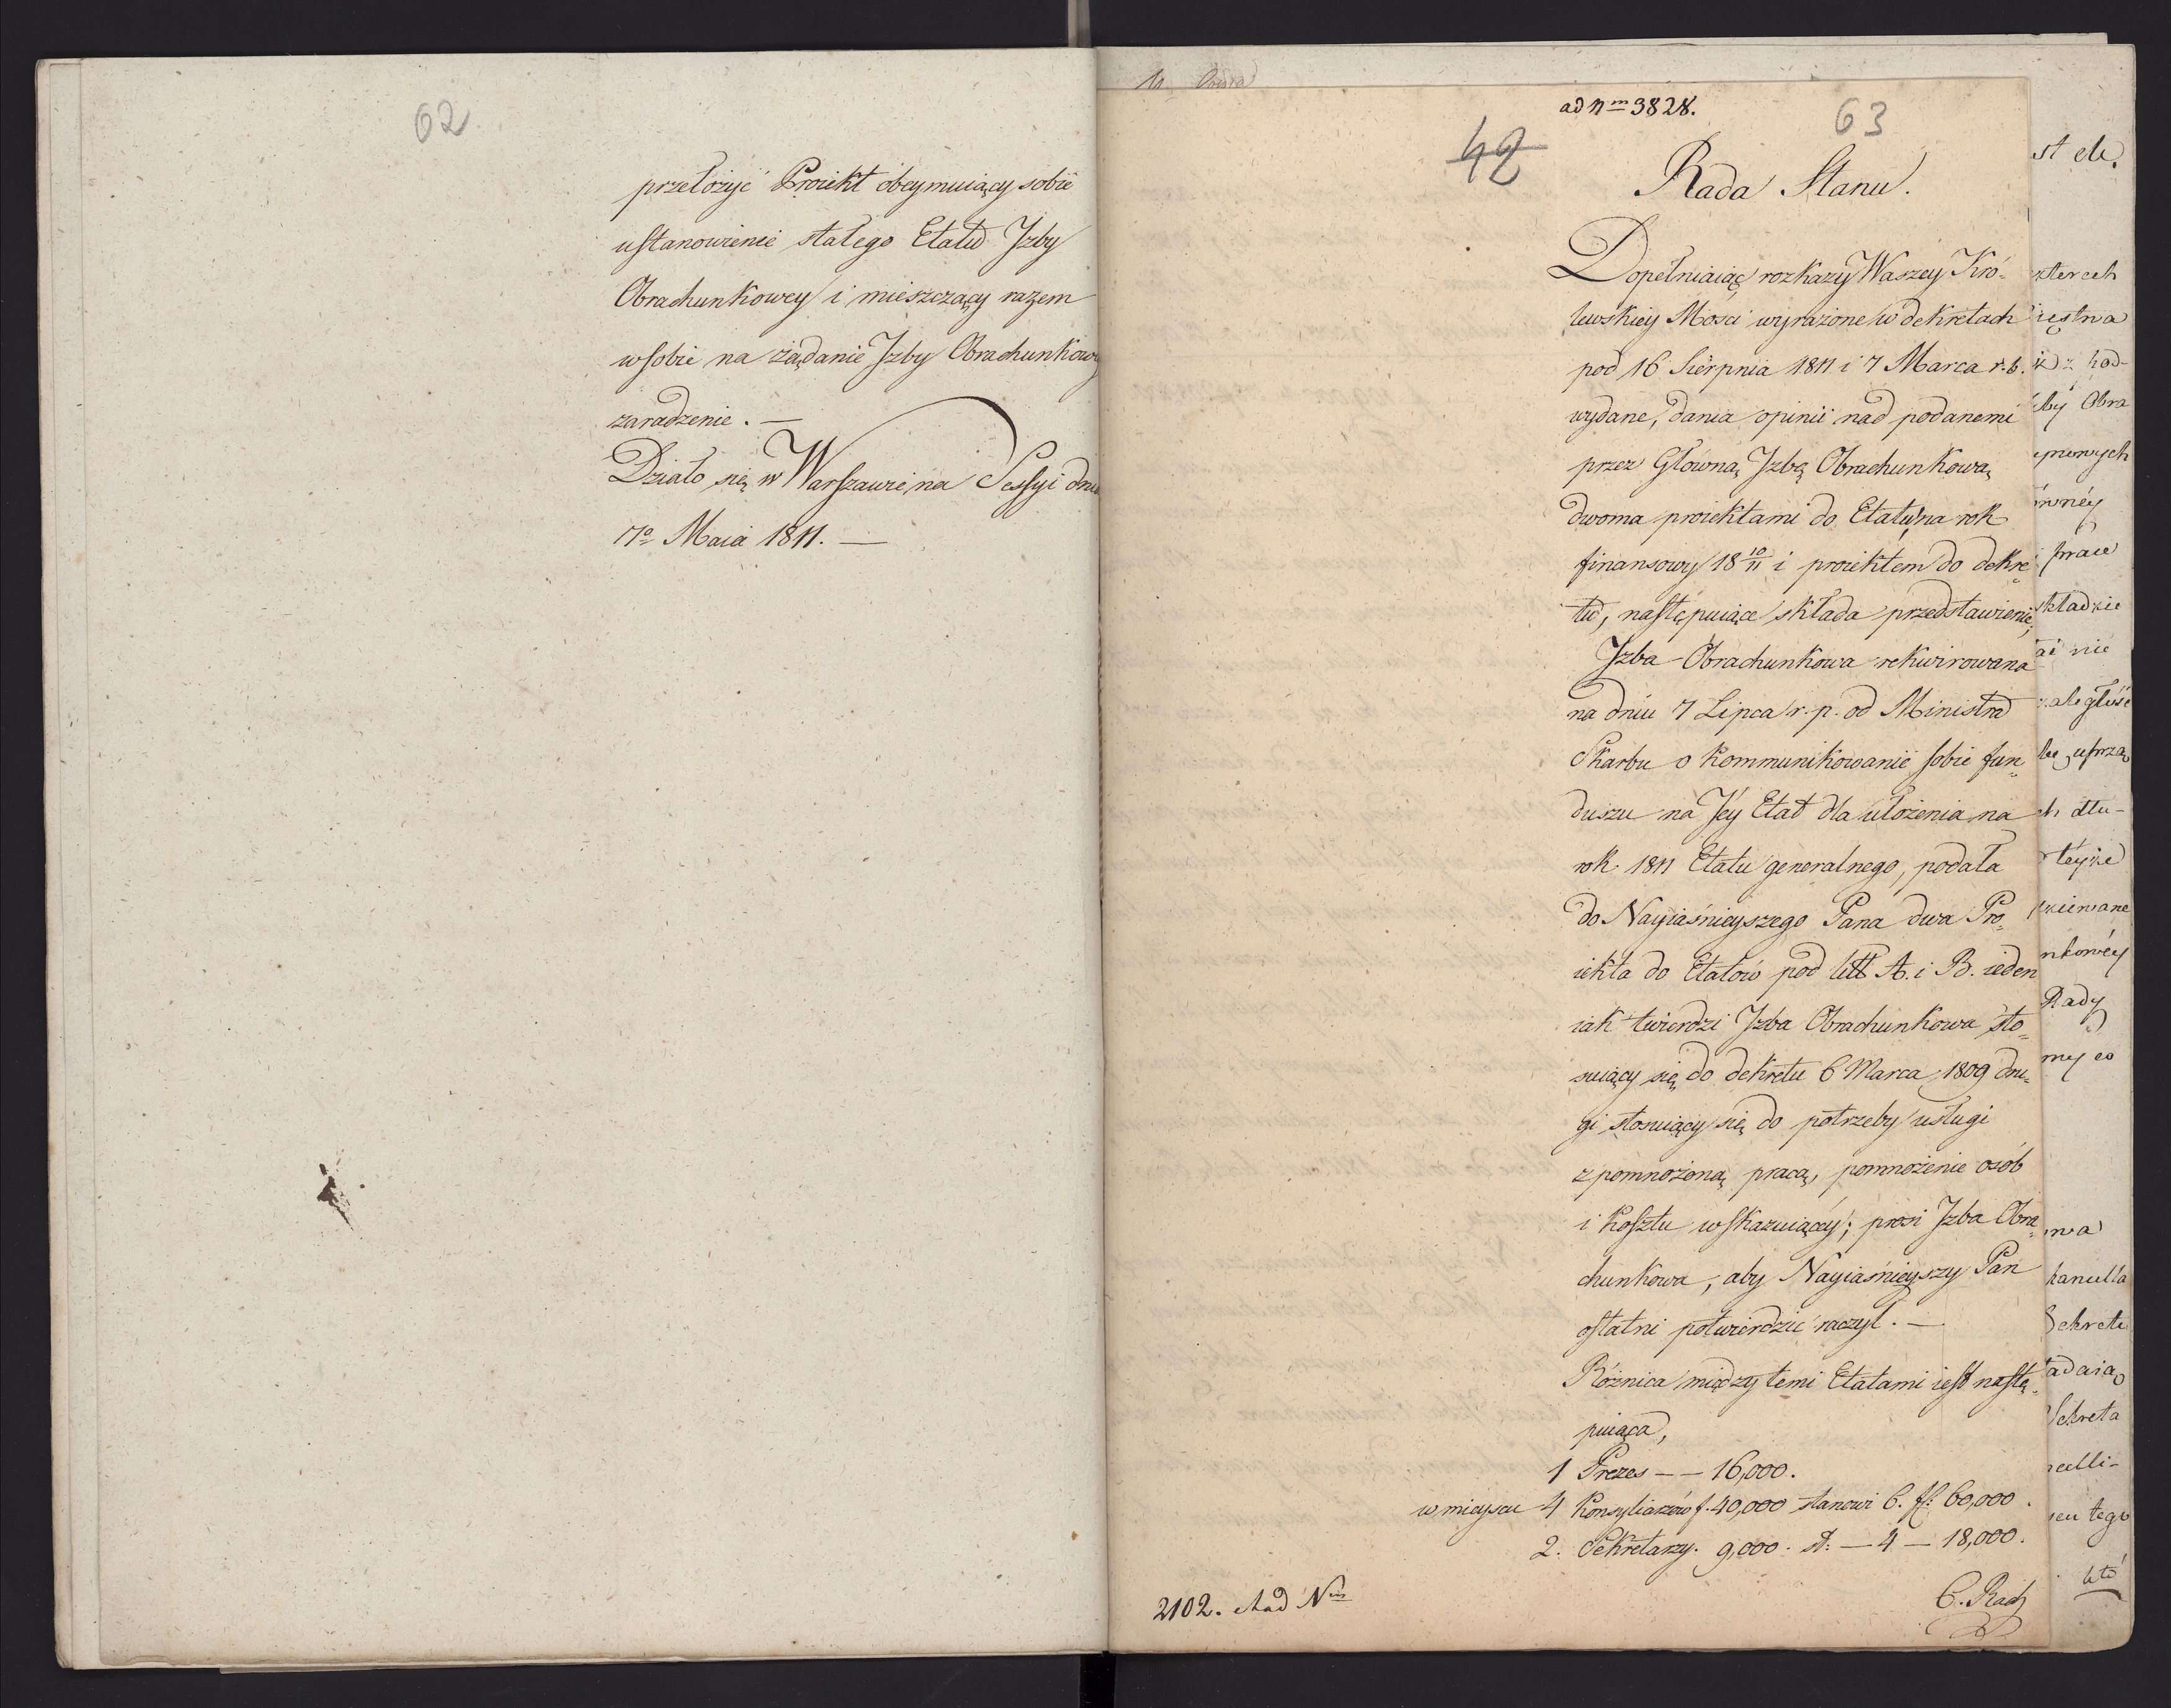 62
przełożyć Proiekt obeymuiący sobie
ustanowienie stałego Etatu Jzby
Obrachunkowey i mieszczący razem
w sobie na żądanie Jzby Obrachunkowey
zaradzenie. —
Działo się w Warszawie na Sessyi dnia
7o Maia 1811. —
ad Nm 3828.
42
63
Rada Stanu.
Dopełniaiąc rozkazy Waszey Kró-
lewskiey Mości wyrażone w dekretach
pod 16 Sierpnia 1811 i 7 Marca r. b.
wydane, dania opinii nad podanemi
przez Główną Jzbę Obrachunkową
dwoma proiektami do Etatu na rok
finansowy 18 10/11 i proiektem do dekre-
tu, następuiące składa przedstawienie;
Jzba Obrachunkowa rekwirowana
na dniu 7 Lipca r. p. od Ministra
Skarbu o kommunikowanie sobie fun-
duszu na Jey Etat dla ułożenia na
rok 1811 Etatu generalnego, podała
do Nayiaśnieyszego Pana dwa Pro-
iekta do Etatów pod litt A. i B. ieden
iak twierdzi Jzba Obrachunkowa sto-
suiący się do dekretu 6 Marca 1809 dru-
gi stosuiący się do potrzeby usługi
z pomnożoną pracą, pomnożenie osób
i kosztu wskazuiący; prosi Jzba Obra-
chunkowa, aby Nayiaśnieyszy Pan
ostatni potwierdzić raczył. —
Różnica między temi Etatami iest nastę-
puiąca,
1 Prezes — — 16,000.
w mieyscu 4 Konsyliarzów f. 40,000 stanowi 6. fl: 60,000.
2. Sekretarzy. 9,000. — 4 — 18,000.
2102. Ad Nm
C. Rady